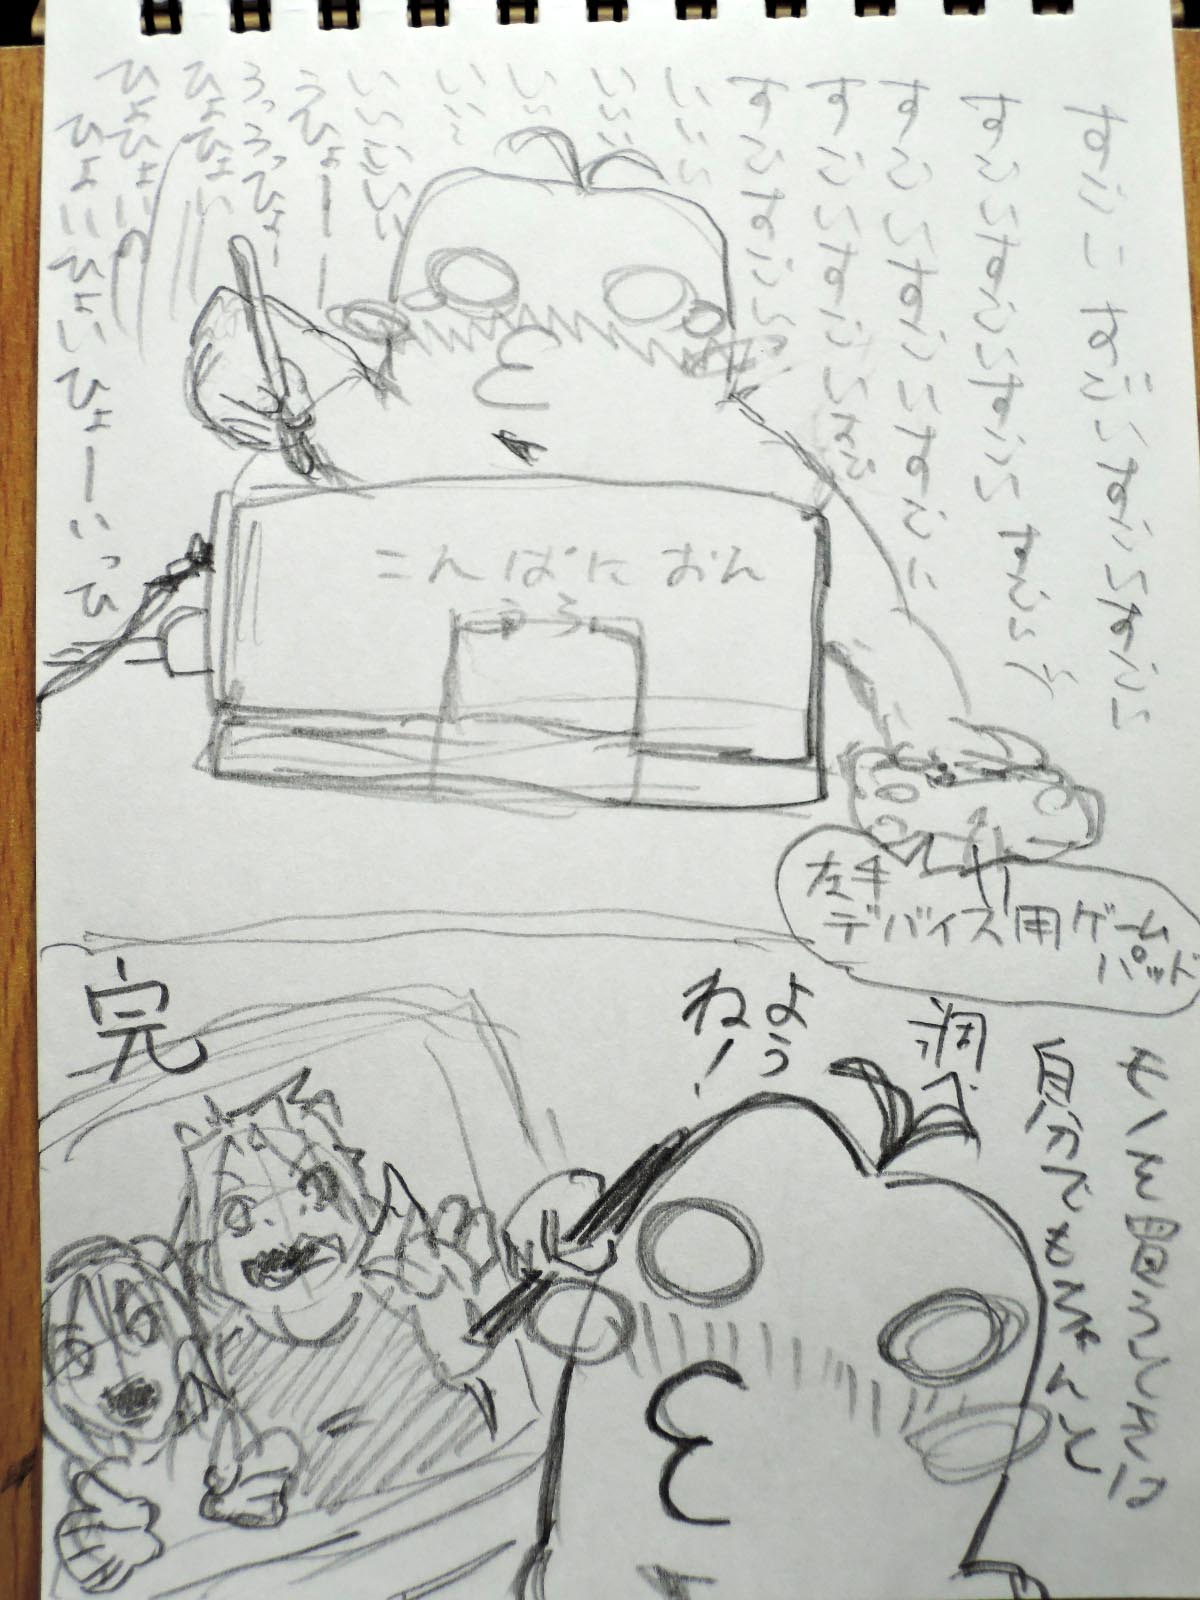 すらいすらいすらいすらいすらい
すらいすらいすらいすらい
すらいすらいすらい
すらいすらい
すらいすらい
いいい
いいい
いい
いい
いいいいい
うひょーーー
うっうっひょー
ひょひょい
ひょひょい
ひょいひょいひょーいっひ
こんぱにおん
うろ
左手
デバイス用ゲーム
パッド
モノを買うときは
自分でもちゃんと
調べ
よう
ね!
完